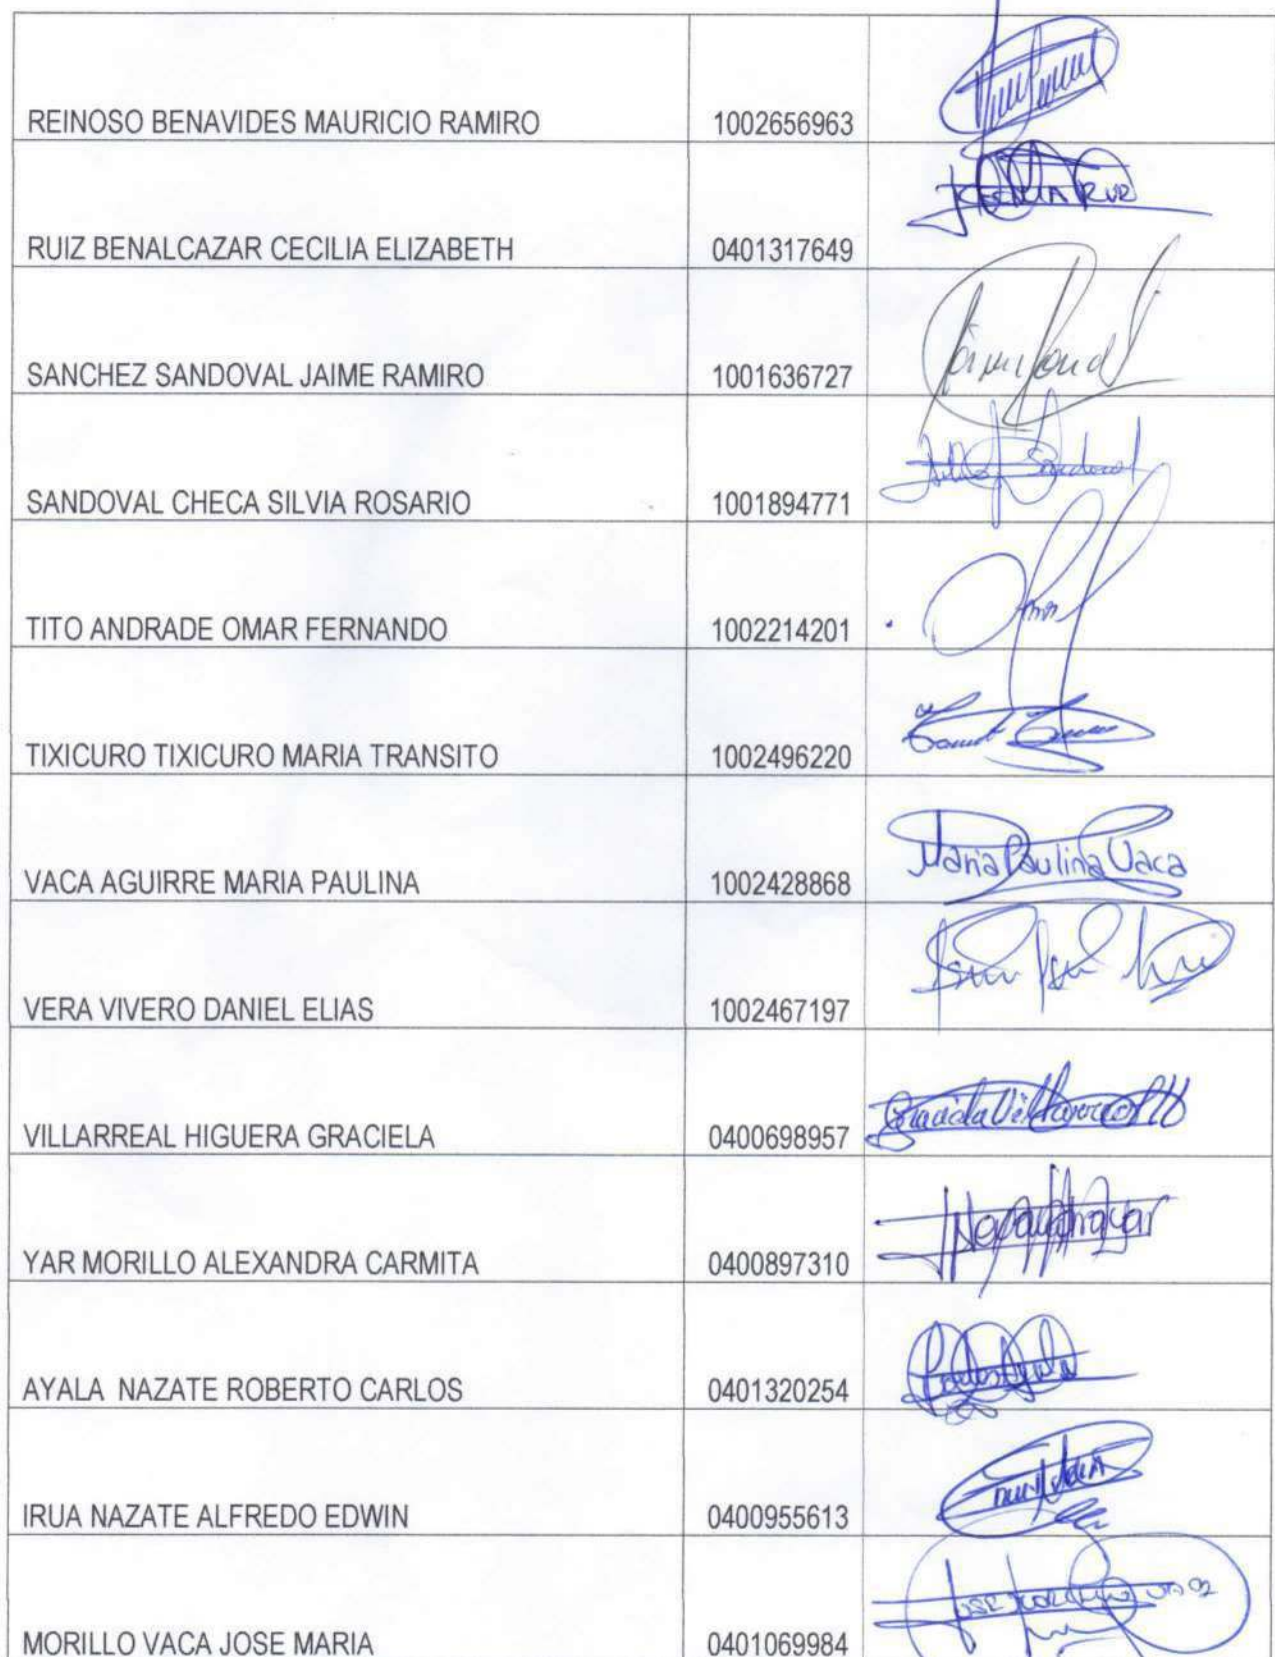 REINOSO BENAVIDES MAURICIO RAMIRO 1002656963
RUIZ BENALCAZAR CECILIA ELIZABETH 0401317649
SANCHEZ SANDOVAL JAIME RAMIRO 1001636727
SANDOVAL CHECA SILVIA ROSARIO 1001894771
TITO ANDRADE OMAR FERNANDO 1002214201
TIXICURO TIXICURO MARIA TRANSITO 1002496220
VACA AGUIRRE MARIA PAULINA 1002428868 Maria Paulina Vaca
VERA VIVERO DANIEL ELIAS 1002467197
VILLARREAL HIGUERA GRACIELA 0400698957
YAR MORILLO ALEXANDRA CARMITA 0400897310
AYALA NAZATE ROBERTO CARLOS 0401320254
IRUA NAZATE ALFREDO EDWIN 0400955613
MORILLO VACA JOSE MARIA 0401069984